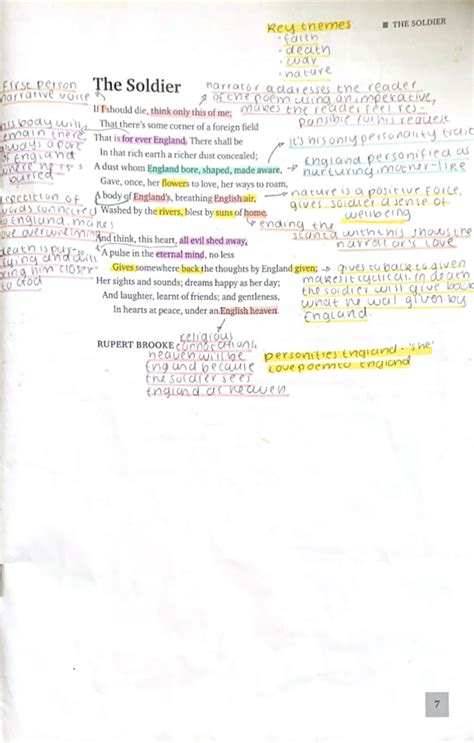 ■ THE SOLDIER
Key themes
· faith
· death
· war
· nature
The Soldier
First person
narrative voice
narrator addresses the reader
of the poem using an imperative,
makes the reader feel res-
ponsible for his request
If I should die, think only this of me;
That there's some corner of a foreign field
That is for ever England. There shall be
In that rich earth a richer dust concealed;
A dust whom England bore, shaped, made aware,
Gave, once, her flowers to love, her ways to roam,
A body of England's, breathing English air,
Washed by the rivers, blest by suns of home.
And think, this heart, all evil shed away,
A pulse in the eternal mind, no less
Gives somewhere back the thoughts by England given;
Her sights and sounds; dreams happy as her day;
And laughter, learnt of friends; and gentleness,
In hearts at peace, under an English heaven.
RUPERT BROOKE
his body will
remain there
always a part
of England
where he is
buried
it's his only personality trait
England personified as
nurturing, mother-like
nature is a positive force,
gives soldier a sense of
wellbeing
repetition of
words connected
to England makes
love overwhelming
ending the
stanza with this shows the
narrator's love
death is pur-
and will
him closer
to God
gives to back to given
makes it cyclical. in death
the soldier will give back
what he was given by
England.
religious
connotations,
heaven will be
England because
the soldier sees
England as heaven
personifies England - 'she'
love poem to England
7